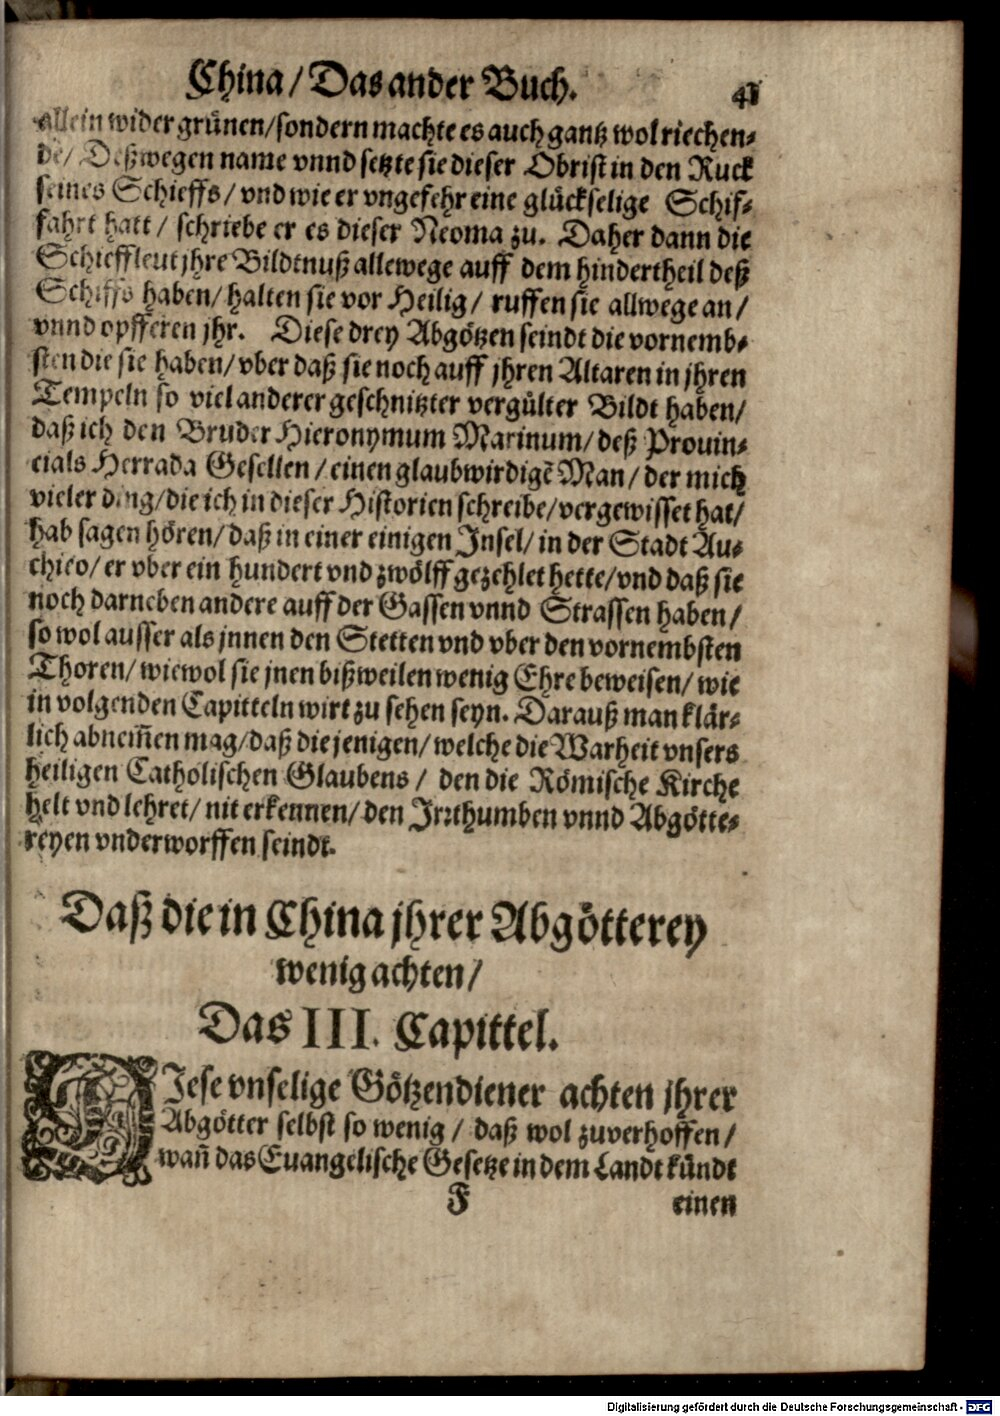 China / Das ander Buch. 41
allein wider grünen / sondern machte es auch gantz wolriechen⸗
de / Deßwegen name vnnd setzte sie dieser Obrist in den Ruck
seines Schieffs / vnd wie er vngefehr eine glückselige Schif⸗
fahrt hatt / schriebe er es dieser Neoma zu. Daher dann die
Schieffleut jhre Bildtnuß allewege auff dem hindertheil deß
Schiffs haben / halten sie vor Heilig / ruffen sie allwege an /
vnnd opfferen jhr. Diese drey Abgötzen seindt die vornemb⸗
sten die sie haben / vber daß sie noch auff jhren Altaren in jhren
Tempeln so viel anderer geschnitzter vergülter Bildt haben /
daß ich den Bruder Hieronymum Marinum / deß Provin⸗
cials Herrada Gesellen / einen glaubwirdigē Man / der mich
vieler ding / die ich in dieser Historien schreibe / vergewisset hat /
hab sagen hören / daß in einer einigen Insel / in der Stadt Au⸗
chieo / er vber ein hundert vnd zwölff gezehlet hette / vnd daß sie
noch darneben andere auff der Gassen vnnd Strassen haben /
so wol ausser als jnnen den Stetten vnd vber den vornembsten
Thoren / wiewol sie jnen bißweilen wenig Ehre beweisen / wie
in volgenden Capitteln wirt zu sehen seyn. Darauß man klär⸗
lich abnem̃en mag / daß die jenigen / welche die Warheit vnsers
heiligen Catholischen Glaubens / den die Römische Kirche
helt vnd lehret / nit erkennen / den Irrthumben vnnd Abgötte⸗
reyen vnderworffen seindt.
Daß die in China jhrer Abgötterey
wenig achten /
Das III. Capittel.
DIese vnselige Götzendiener achten jhrer
Abgötter selbst so wenig / daß wol zuverhoffen /
wañ das Euangelische Gesetze in dem Landt kündt
F einen
Digitalisierung gefördert durch die Deutsche Forschungsgemeinschaft - DFG